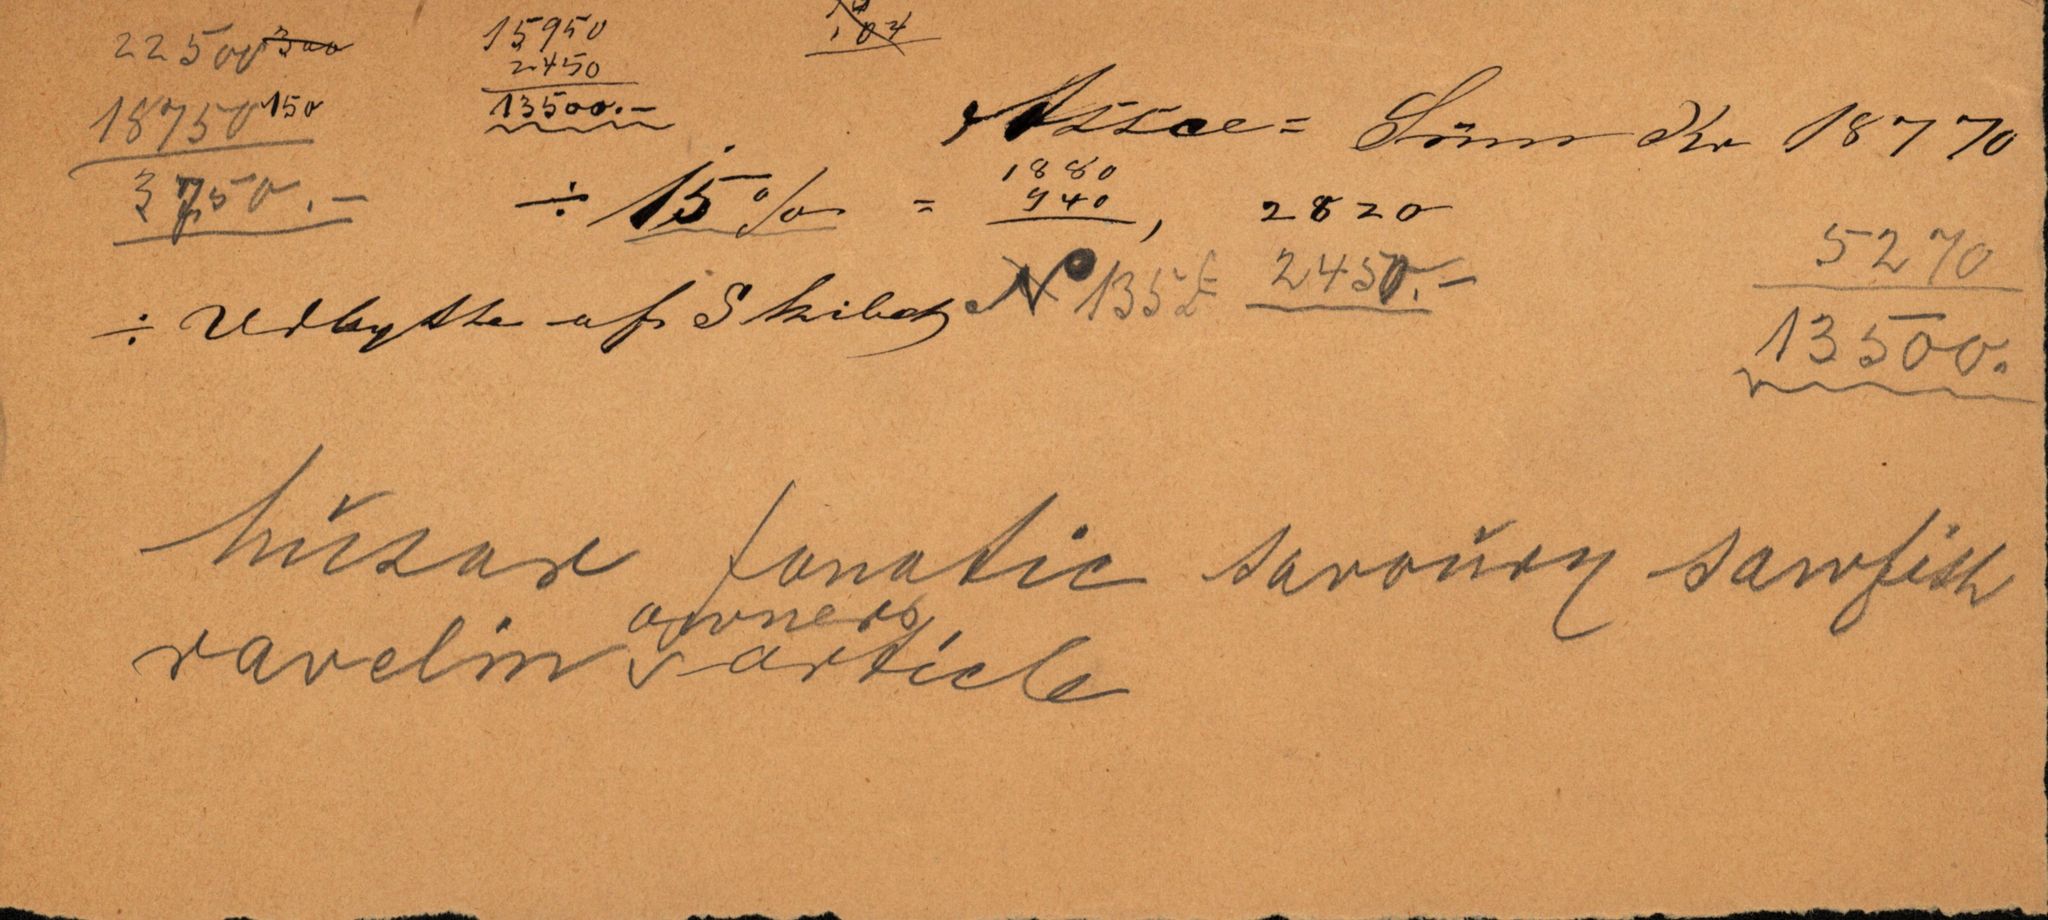 22500 300 15950 104
2450
18750 150 13500.-
Assce = Sum Kr 18770
3750.- ÷ 15% = 1880 940, 2820
5270
÷ Udbytte af Skibet No 135£ 2450.-
13500.
húsar fanatic savoury sawfish
owners
ravelin article